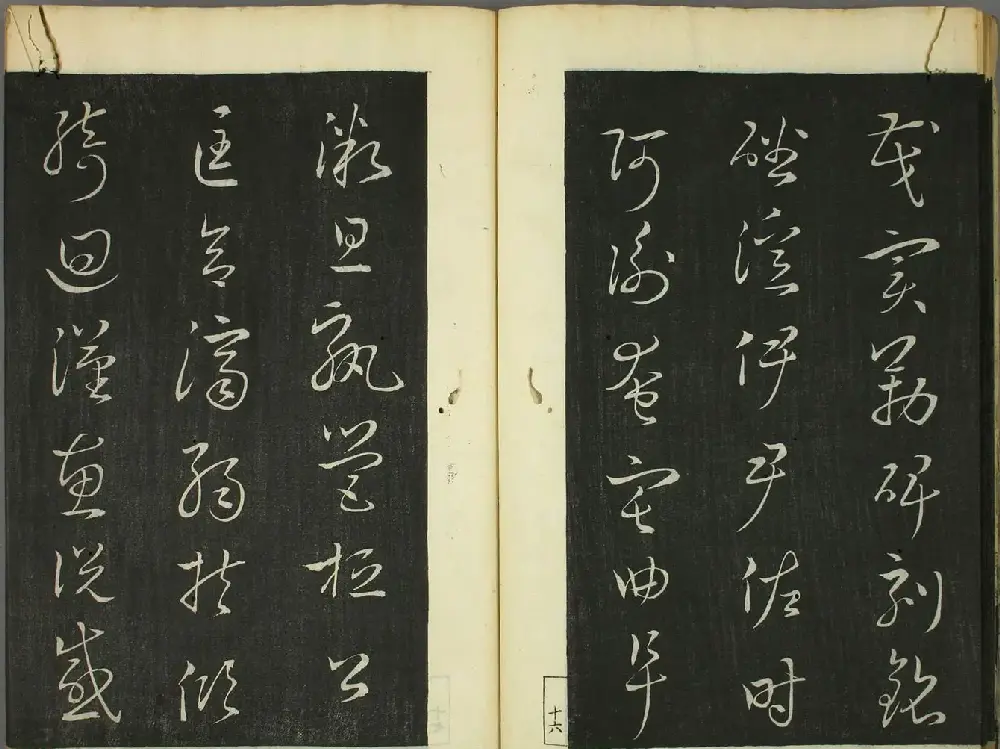 茂實勒碑刻銘
磻溪伊尹佐時
阿衡奄宅曲阜
十六
微旦孰營桓公
匡合濟弱扶傾
綺迴漢惠說感